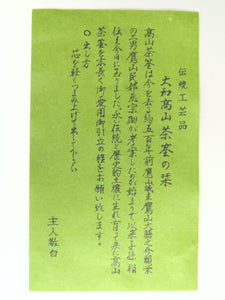 伝統工芸品
大和高山茶筌の栞
高山茶筌は今を去る約五百年前鷹山城主鷹山大膳之介頼栄
の二男鷹山民部丞宗砌が考案したのが始まりで以来子孫相
伝え今日に至りました。永い伝統と歴史的土壌に生れ育って来た高山
茶筌を末長く御愛用御引立の程をお願い致します。
○出し方
芯を軽くつまみ上げて出して下さい
主人敬白